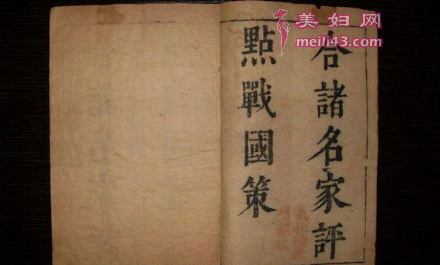 合諸名家評
點戰國策
美妇网
meili43.com